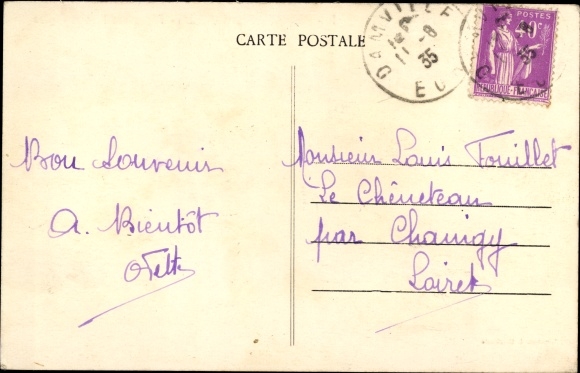 CARTE POSTALE
DAMVILLE
11 -8
35
EU
POSTES
40c
REPUBLIQUE-FRANCAISE
Bon Souvenir
A. Bientôt
Odette
Monsieur Louis Fouillet
Le Chêneteau
par Chaingy
Loiret